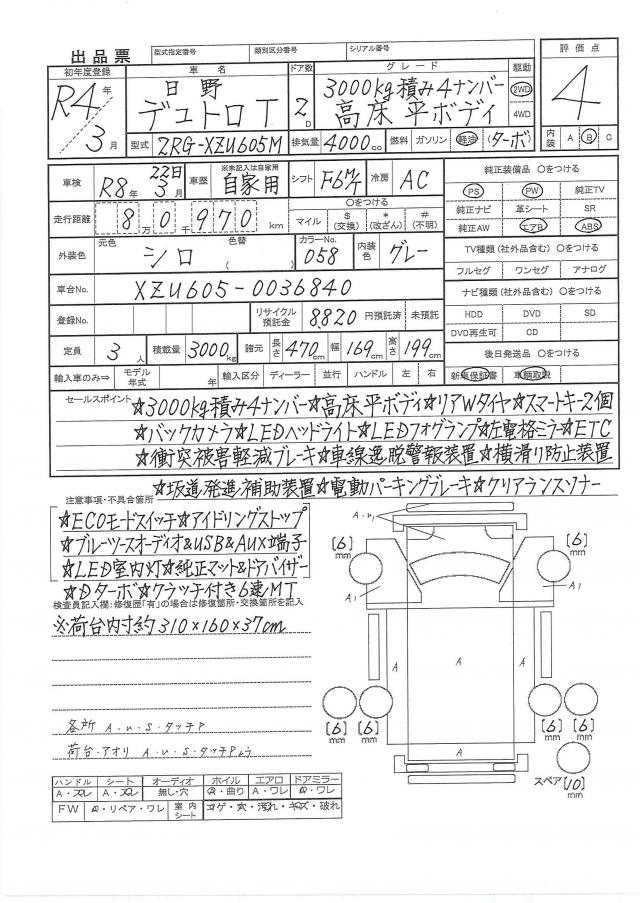 出品票 型式指定番号 類別区分番号 シリアル番号
初年度登録 車名 ドア数 グレード 駆動 評価点
R4年 日野 3000kg積み4ナンバー 2WD 4
3月 デュトロT 2D 高床平ボディ 4WD
型式 2RG-XZU605M 排気量 4000cc 燃料 ガソリン 軽油 (ターボ) 内装 A B C
車検 R8年 22日 3月 車歴 ※未記入は自家用 自家用 シフト F6M/T 冷房 AC 純正装備品 〇をつける
PS PW 純正TV
走行距離 8万0千970km 〇をつける マイル $(交換) *(改ざん) #(不明) 純正ナビ 革シート SR
純正AW エアB ABS
外装色 元色 シロ 色替 ( ) カラーNo. 058 内装色 グレー TV種類(社外品含む) 〇をつける
フルセグ ワンセグ アナログ
車台No. XZU605-0036840 ナビ種類(社外品含む) 〇をつける
登録No. リサイクル預託金 8820 円預託済 未預託 HDD DVD SD
DVD再生可 CD
定員 3人 積載量 3000kg 諸元 長さ 470cm 幅 169cm 高さ 199cm 後日発送品 〇をつける
輸入車のみ⇒ モデル年式 年 輸入区分 ディーラー 並行 ハンドル 左 右 新車保証書 車輌取説
セールスポイント ☆3000kg積み4ナンバー☆高床平ボディ☆リアWタイヤ☆スマートキー2個
☆バックカメラ☆LEDヘッドライト☆LEDフォグランプ☆左電格ミラー☆ETC
☆衝突被害軽減ブレーキ☆車線逸脱警報装置☆横滑り防止装置
☆坂道発進補助装置☆電動パーキングブレーキ☆クリアランスソナー
注意事項・不具合箇所
☆ECOモードスイッチ☆アイドリングストップ
☆ブルーツースオーディオ&USB&AUX端子
☆LED室内灯☆純正マット&ドアバイザー
☆Dターボ☆クラッチ付き6速MT
検査員記入欄:修復歴「有」の場合は修復箇所・交換箇所を記入
※荷台内寸約310×160×37cm
各所 A・U・S・タッチP
荷台・アオリ A・U・S・タッチP
A・U1
[6]mm [6]mm
A1 A1
A A A
[6]mm [6]mm [6]mm [6]mm
A
スペア[10]mm
ハンドル シート オーディオ ホイル エアロ ドアミラー
A・スレ A・スレ 無し・穴 A・曲り A・ワレ A・ワレ
FW A・リペア・ワレ 室内シート コゲ・穴・汚れ・キズ・破れ